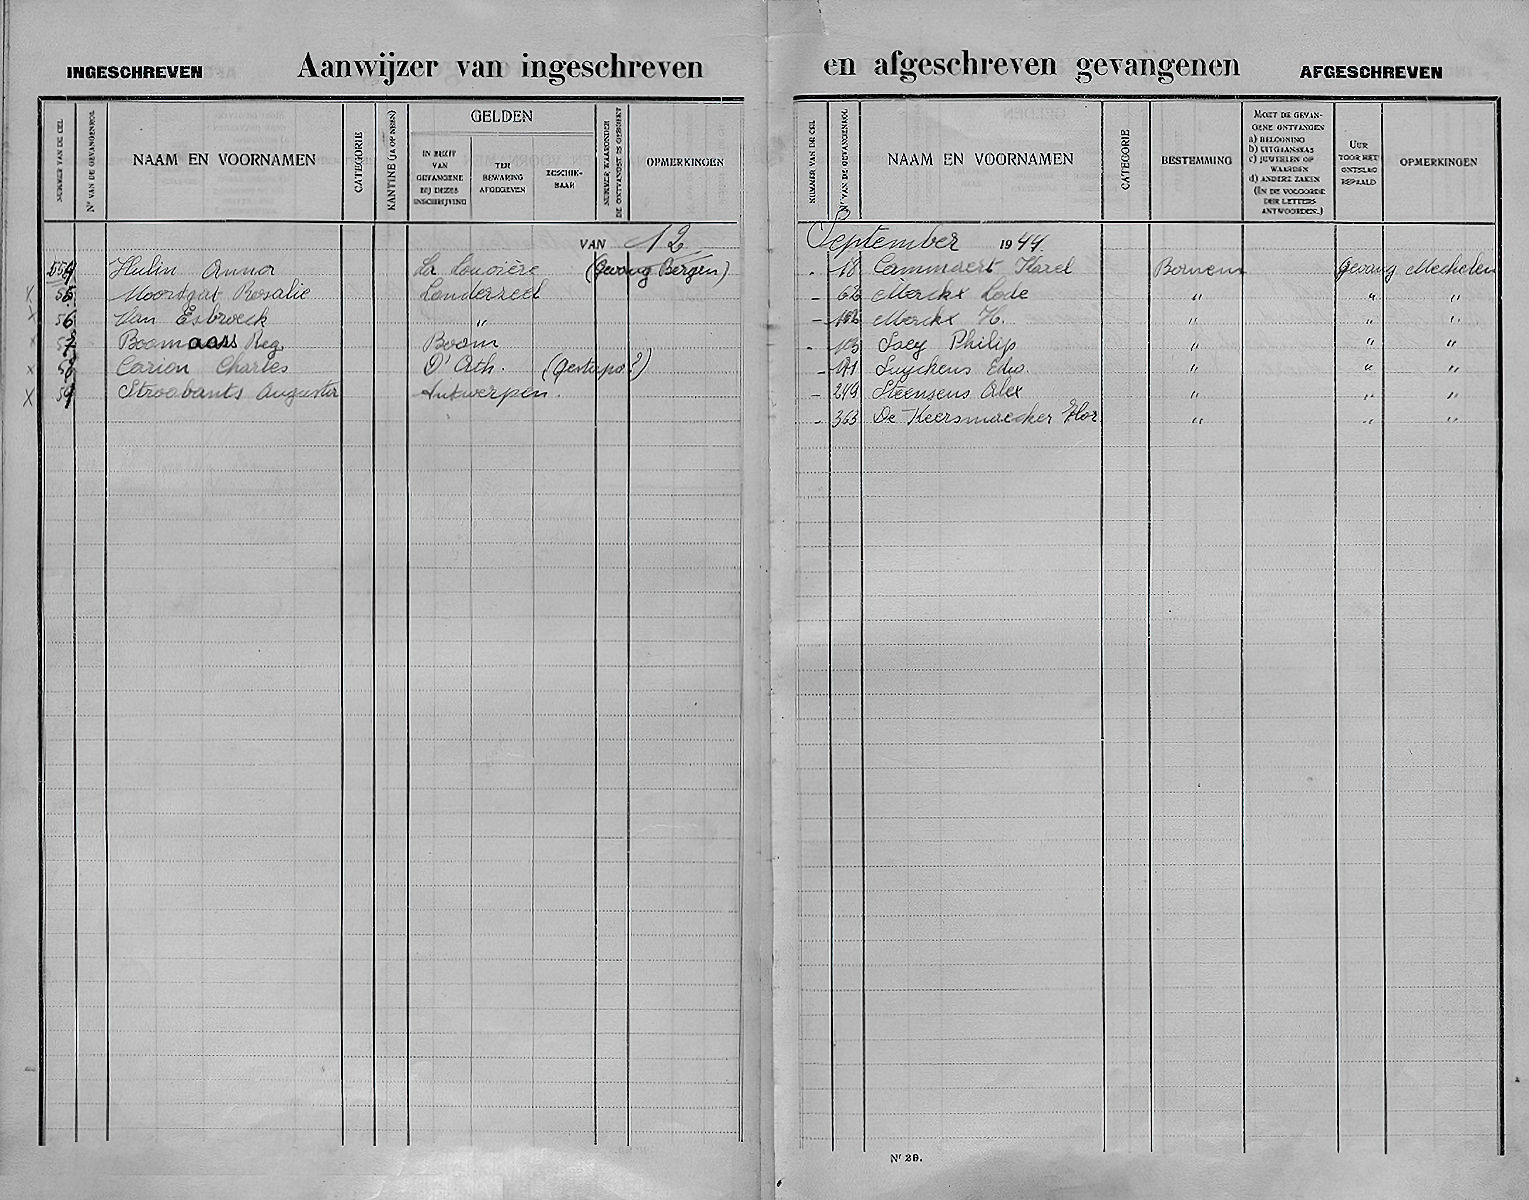 INGESCHREVEN
Aanwijzer van ingeschreven
en afgeschreven gevangenen
AFGESCHREVEN
NUMMER VAN DE CEL
Nr VAN DE GEVANGENROL
NAAM EN VOORNAMEN
CATEGORIE
KANTINE (JA OF NEEN)
GELDEN
IN BEZIT VAN GEVANGENE BIJ DEZES INSCHRIJVING
TER BEWARING AFGEGEVEN
BESCHIKBAAR
NUMMER WAARONDER DE ONTVANGST IS GEBOEKT
OPMERKINGEN
NUMMER VAN DE CEL
Nr VAN DE GEVANGENROL
NAAM EN VOORNAMEN
CATEGORIE
BESTEMMING
MOET DE GEVANGENE ONTVANGEN
a) BELOONING
b) UITGANGSKAS
c) JUWEELEN OF WAARDEN
d) ANDERE ZAKEN
(IN DE VOLGORDE DER LETTERS ANTWOORDEN.)
UUR VOOR HET ONTSLAG BEPAALD
OPMERKINGEN
VAN 12 September 1944
554 Hulin Anna La Louvière (Gevang Bergen)
x 55 Moortgat Rosalie Londerzeel
x 56 Van Esbroeck "
57 Boomaars Reg Boom
x 58 Carion Charles D'Ath. (Gestapo?)
x 59 Stroobants Augusta Antwerpen.
18 Cammaert Karel Bornem Gevang Mechelen
- 62 Merckx Lode " " "
- Merckx H. " " "
- 103 Philip " " "
- 181 Luyckens Edw. " " "
- 249 Steensens Alex " " "
- 363 De Keersmaecker Flor. " " "
Nr 29.